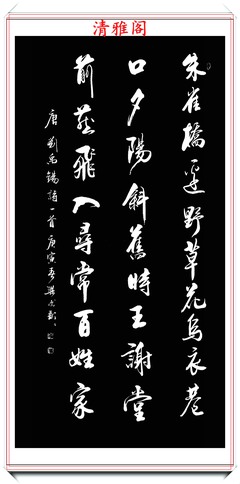 清雅阁
朱雀橋邊野草花烏衣巷
口夕陽斜舊時王謝堂
前燕飛入尋常百姓家
唐劉禹錫詩一首庚寅春